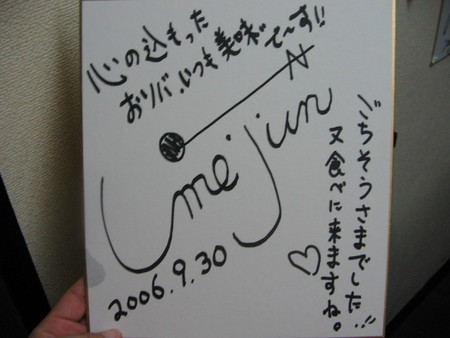 心の込もった
おソバ、いつも美味で〜す!!
Umejun
2006.9.30
ごちそうさまでした!!
又食べに来ますね。
♡